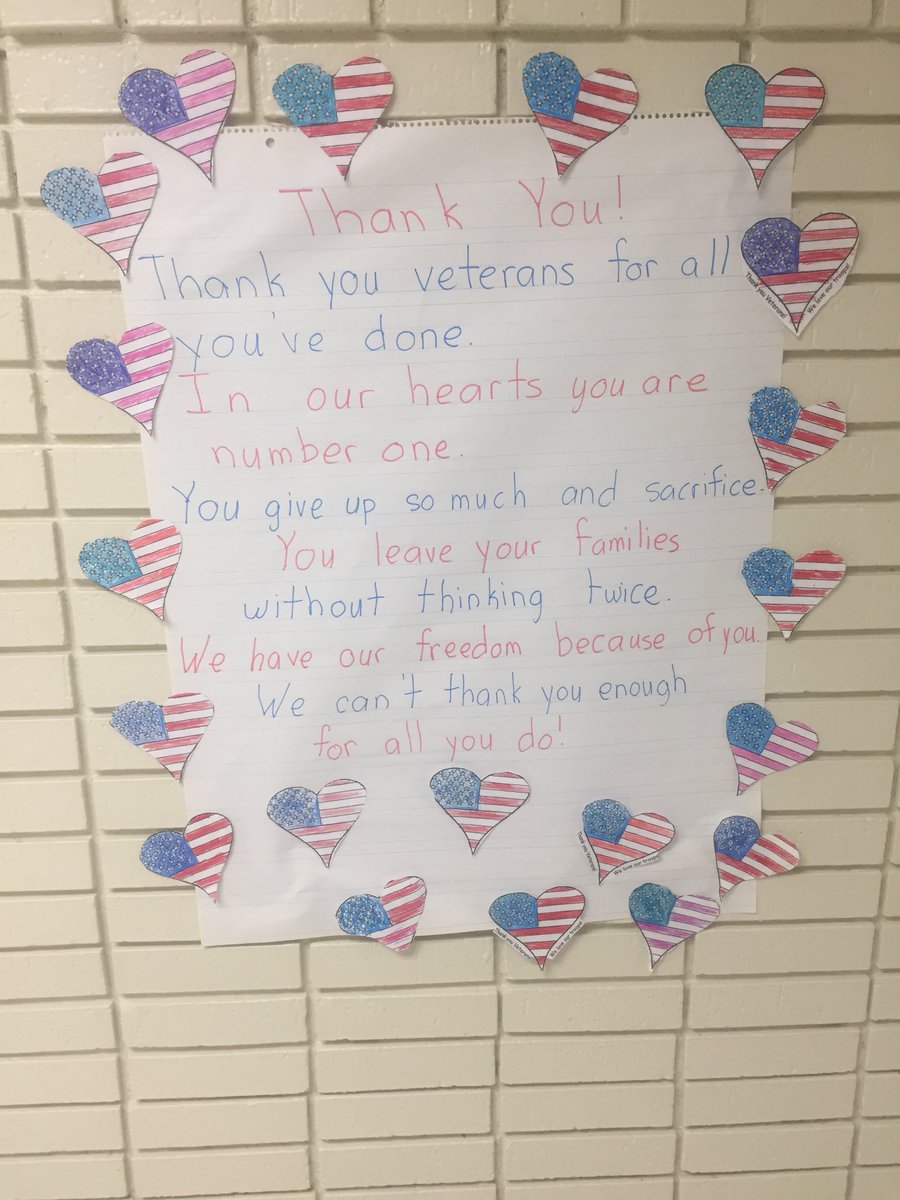 Thank You!
Thank you veterans for all
you've done.
In our hearts you are
number one.
You give up so much and sacrifice.
You leave your families
without thinking twice.
We have our freedom because of you.
We can't thank you enough
for all you do!
Thank you Veterans!
We love our troops!
Thank you Veterans!
We love our troops!
Thank you Veterans!
We love our troops!